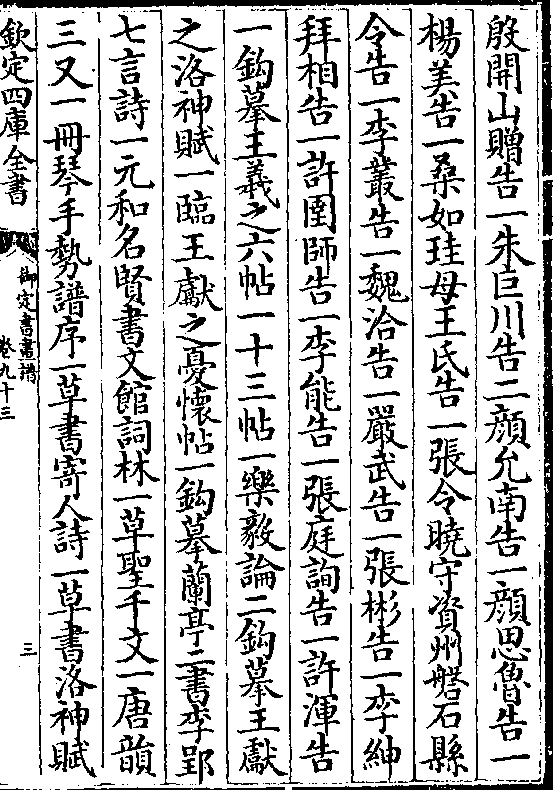 殷開山贈告一朱巨川告二顔允南告一顔思魯告一
楊美告一桑如珪母王氏告一張令曉守資州磐石縣
令告一李叢告一魏洽告一嚴武告一張彬告一李紳
拜相告一許圉師告一李能告一張庭詢告一許渾告
一鈎摹王羲之六帖一十三帖一樂毅論二鈎摹王獻
之洛神賦一臨王獻之憂懷帖一鈎摹蘭亭二書李郢
七言詩一元和名賢書文館詞林一草聖千文一唐韻
三又一冊琴手勢譜序一草書寄人詩一草書洛神賦
欽定四庫全書
御定書畫譜
卷九十三
三